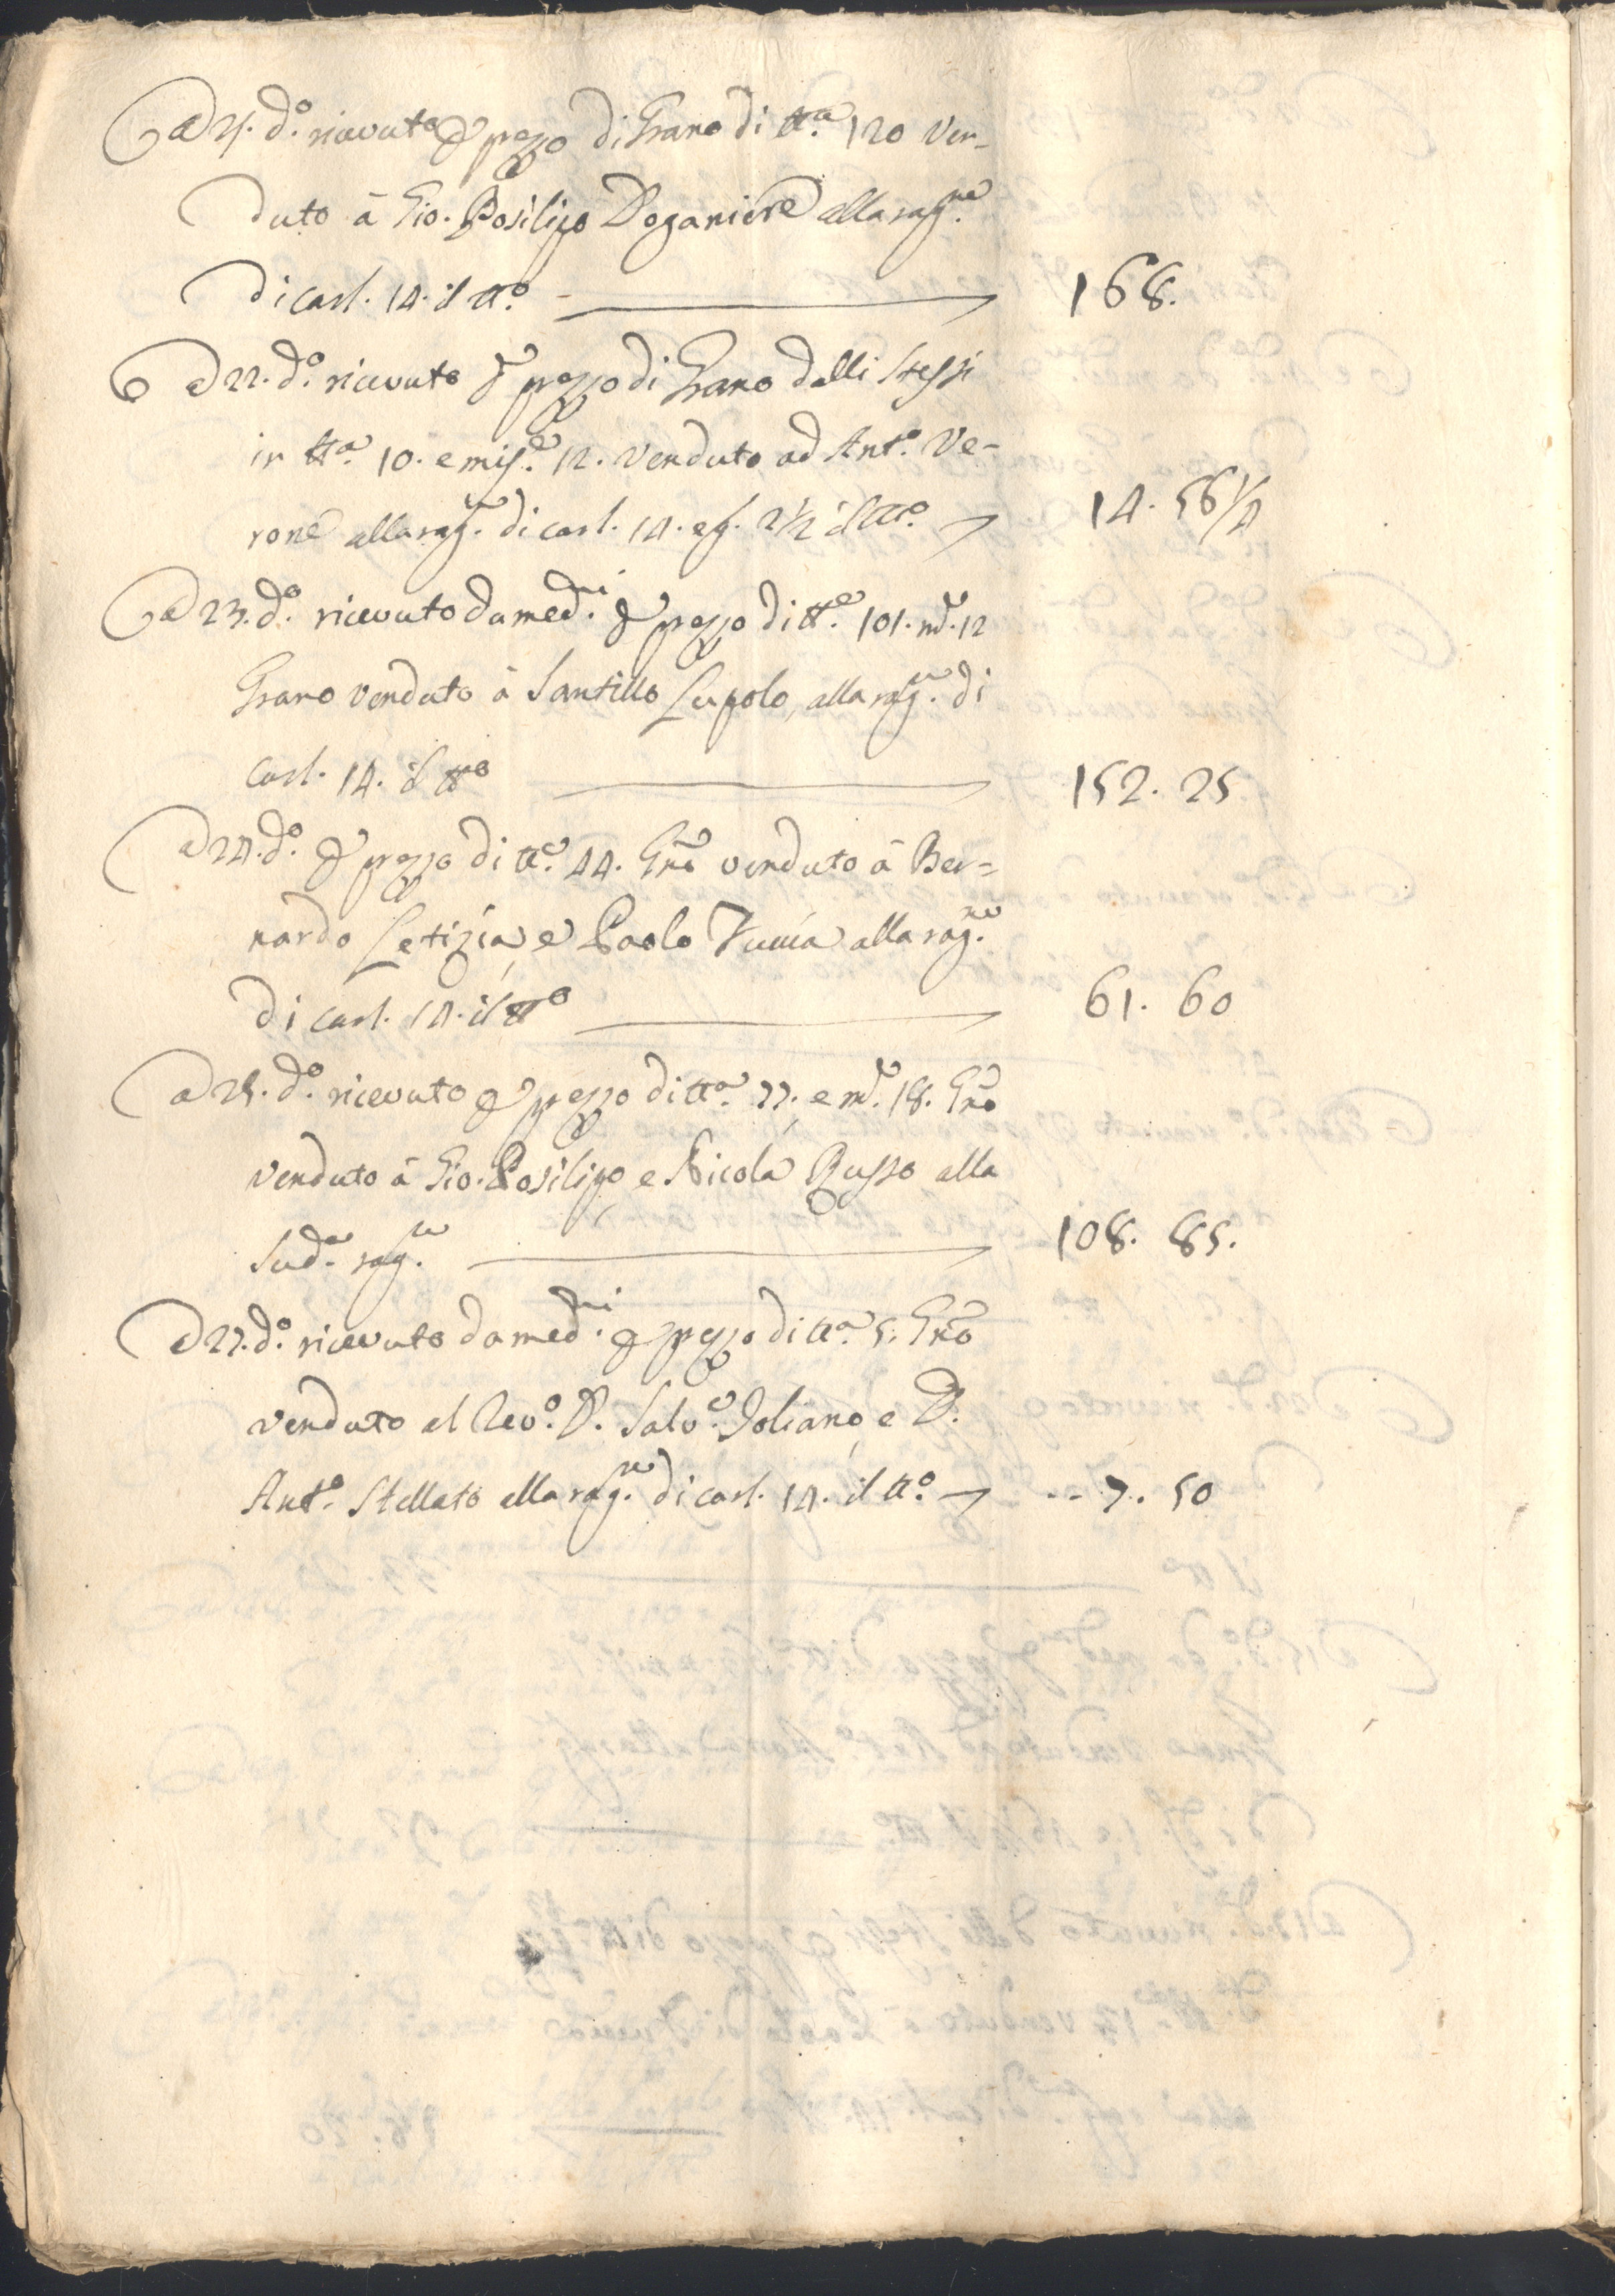 A 21. d.º ricevuto per prezzo di Grano di tt.ª 120 ven-
duto à Gio. Posilipo Doganiere alla rag.ne
di carl. 14. il tt.º 168.
A 22. d.º ricevuto per prezzo di Grano dalli stessi
in tt.ª 10. e mis.e 12. venduto ad Ant.º Ve-
rone alla rag.e di carl. 14. e g. 2½ il tt.º 14. 56¼
A 23. d.º ricevuto da med.mi per prezzo di tt.ª 101. m.e 12
Grano venduto à Santillo Lupolo, alla rag.e di
carl. 14. il tt.º 152. 25
A 24. d.º per prezzo di tt.ª 44. Grño venduto à Ber=
nardo Letizia, e Paolo alla rag.ne
di carl. 14. il tt.º 61. 60
A 25. d.º ricevuto per prezzo di tt.ª 77. e m.e 18. Grño
venduto à Gio. Posilipo, e Nicola Russo alla
sud.ª rag.e 108. 85.
A 27. d.º ricevuto da med.mi per prezzo di tt.ª 5. Grño
venduto al Rev.º D. Salv.e Joliano, e D.
Ant.º Stellato alla rag.ne di carl. 14. il tt.º -- 7. 50